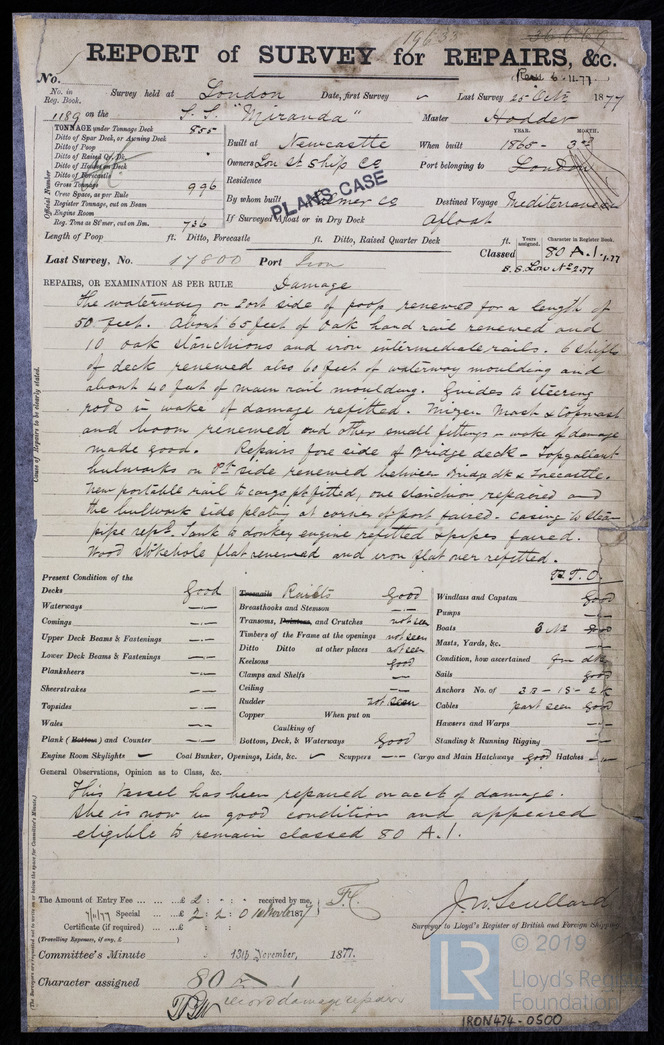 19633
REPORT of SURVEY for REPAIRS, &c.
No. Rec 6.11.77
No. in Reg. Book. Survey held at London Date, first Survey Last Survey 25 Oct 1877
1189 on the S.S. "Miranda" Master Hodder
TONNAGE under Tonnage Deck 855
Ditto of Spar Deck, or Awning Deck
Ditto of Poop
Ditto of Raised Qr. Dk.
Ditto of Houses on Deck
Ditto of Forecastle
Gross Tonnage 996
Crew Space, as per Rule
Register Tonnage, cut on Beam
Engine Room
Reg. Tons as St'mer, cut on Bm. 736
Official Number
YEAR. MONTH.
Built at Newcastle When built 1865 - 3
Owners Lon St Ship Co Port belonging to London
Residence
PLANS CASE
By whom built Palmer Co Destined Voyage Mediterranean
If Surveyed Afloat or in Dry Dock Afloat
Length of Poop ft. Ditto, Forecastle ft. Ditto, Raised Quarter Deck ft.
Years assigned. Character in Register Book.
Last Survey, No. 17800 Port Iron Classed 80 A.1. 1.77
S.S. Lon No 2.77
REPAIRS, OR EXAMINATION AS PER RULE Damage
The waterway on Port side of poop renewed for a length of
50 feet. About 65 feet of Oak hand rail renewed and
10 oak stanchions and iron intermediate rails. 6 shifts
of deck renewed also 60 feet of waterway moulding and
about 40 feet of main rail moulding. Guides to steering
rods in wake of damage refitted. Mizen Mast & Topmast
and boom renewed and other small fittings in wake of damage
made good. Repairs fore side of Bridge deck - Topgallant
bulwarks on Pt side renewed between Bridge dk & Forecastle.
New portable rail to cargo pt fitted, one stanchion repaired and
the bulwark side plating at corner of port faired. Casing to steam
pipe repd. Tank to donkey engine refitted & pipes faired.
Wood stokehole flat renewed and iron flat over refitted.
P.T.O.
Cause of Repairs to be clearly stated.
Present Condition of the
Decks Good
Waterways
Comings
Upper Deck Beams & Fastenings
Lower Deck Beams & Fastenings
Planksheers
Sheerstrakes
Topsides
Wales
Plank (Bottom) and Counter
Treenails Rivets Good
Breasthooks and Stemson
Transoms, Pointers, and Crutches not seen
Timbers of the Frame at the openings not seen
Ditto Ditto at other places not seen
Keelsons Good
Clamps and Shelfs
Ceiling
Rudder not seen
Copper When put on
Caulking of
Bottom, Deck, & Waterways Good
Windlass and Capstan Good
Pumps
Boats 3 No Good
Masts, Yards, &c.
Condition, how ascertained
Sails good
Anchors No. of 3 B - 1 S - 2 K
Cables part seen Good
Hawsers and Warps
Standing & Running Rigging
Engine Room Skylights Coal Bunker, Openings, Lids, &c. Scuppers Cargo and Main Hatchways good Hatches
General Observations, Opinion as to Class, &c.
This Vessel has been repaired on acct of damage.
She is now in good condition and appeared
eligible to remain classed 80 A.1.
(The Surveyors are requested not to write on or below the space for Committee's Minute.)
The Amount of Entry Fee £ 2 : : received by me,
7/11/77 Special £ 2 : 2 : 0 1877
Certificate (if required) £ : :
(Travelling Expenses, if any, £ )
J. W. Scullard
Surveyor to Lloyd's Register of British and Foreign Shipping
Committee's Minute 13th November, 1877.
Character assigned 80 A 1
record damage repairs
LR
© 2019
Lloyd's Register
Foundation
IRON474-0500